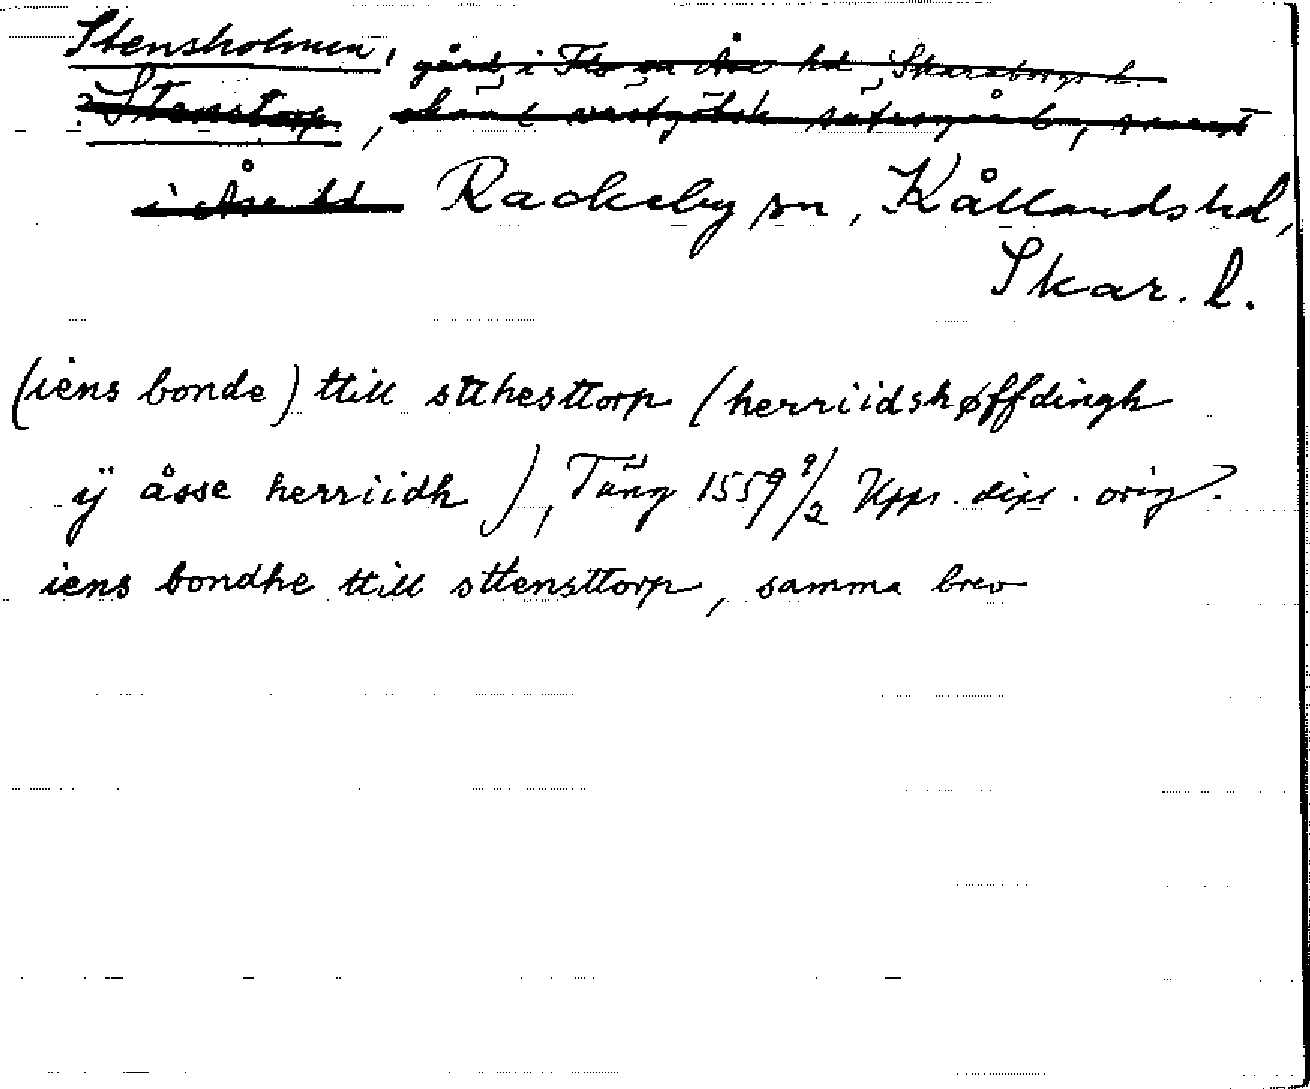 Stensholmen, gård i Flo sn Åse hd, Skaraborgs l.
?Stenstorp, okänd västgötsk sätesgård, snarast
i Åse hd Rackeby sn, Kållands hd,
Skar. l.
(iens bonde) ttill stthesttorp (herriidshøffdingh
ÿ åsse herriidh), Tång 1559 9/2 Upps. dipl. orig.
iens bondhe ttill sttensttorp, samma brev